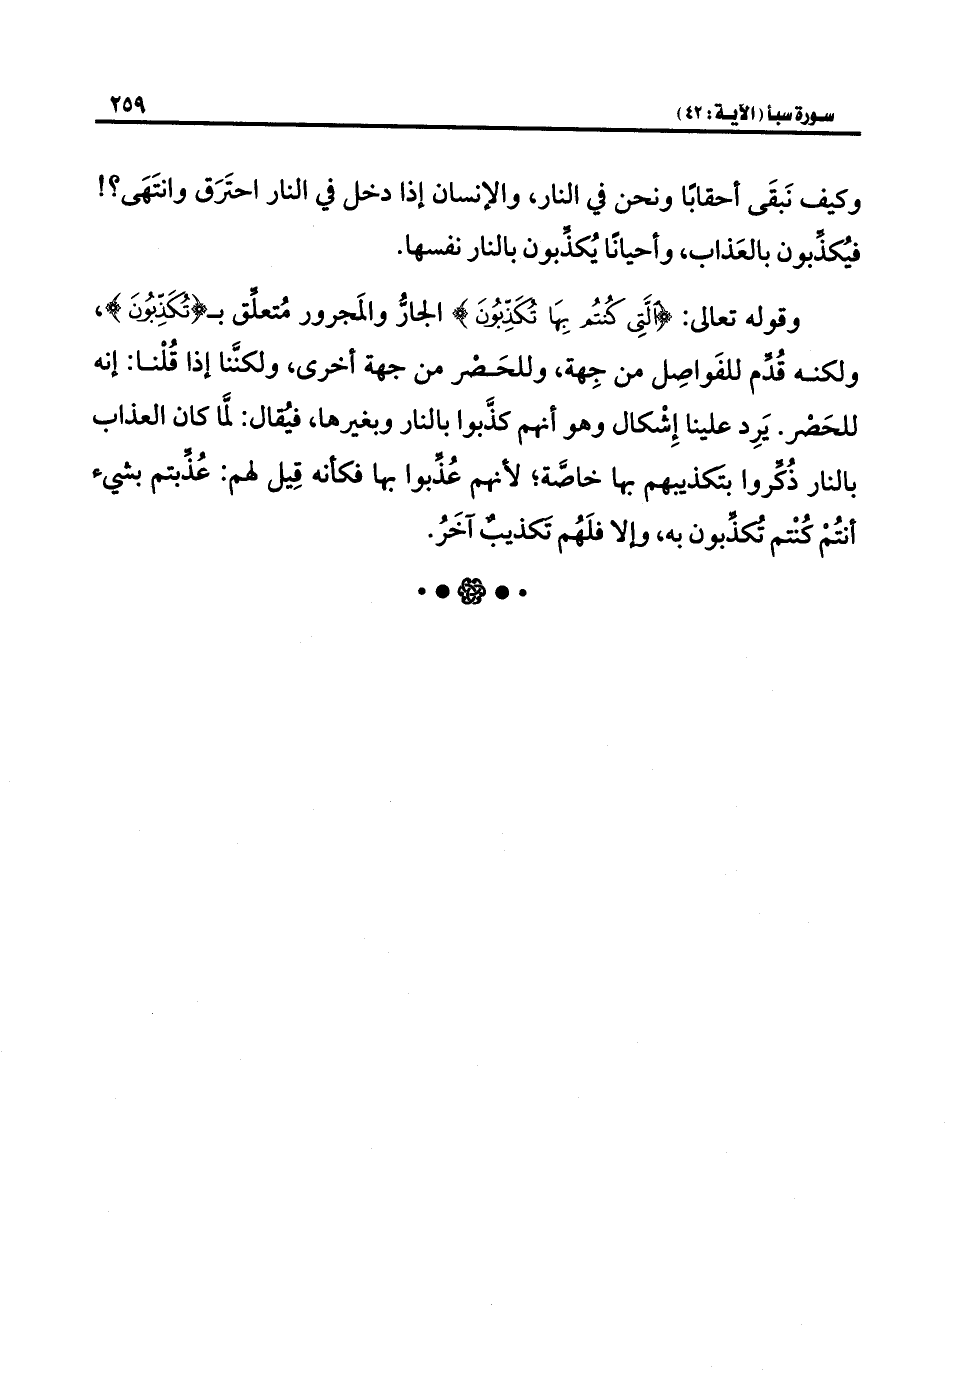 سورة سبأ (الآية: ٤٢)
٢٥٩
وكيف نَبقَى أحقابًا ونحن في النار، والإنسان إذا دخل في النار احتَرَق وانتَهَى؟!
فيُكذِّبون بالعَذاب، وأحيانًا يُكذِّبون بالنار نفسها.
وقوله تعالى: ﴿ٱلَّتِى كُنتُم بِهَا تُكَذِّبُونَ﴾ الجارُّ والمَجرور مُتعلِّق بـ﴿تُكَذِّبُونَ﴾،
ولكنـه قُدِّم للفَواصِل من جِهة، وللحَـصْر من جهة أخرى، ولكنَّنا إذا قُلْنـا: إنه
للحَصْر. يَرِد علينا إِشْكال وهو أنهم كذَّبوا بالنار وبغيرها، فيُقال: لمَّا كان العذاب
بالنار ذُكِّروا بتكذيبهم بها خاصَّة؛ لأنهم عُذِّبوا بها فكأنه قِيل لهم: عُذِّبتم بشيء
أنتُمْ كُنْتم تُكذِّبون به، وإلا فلَهُم تَكذيبٌ آخَرُ.